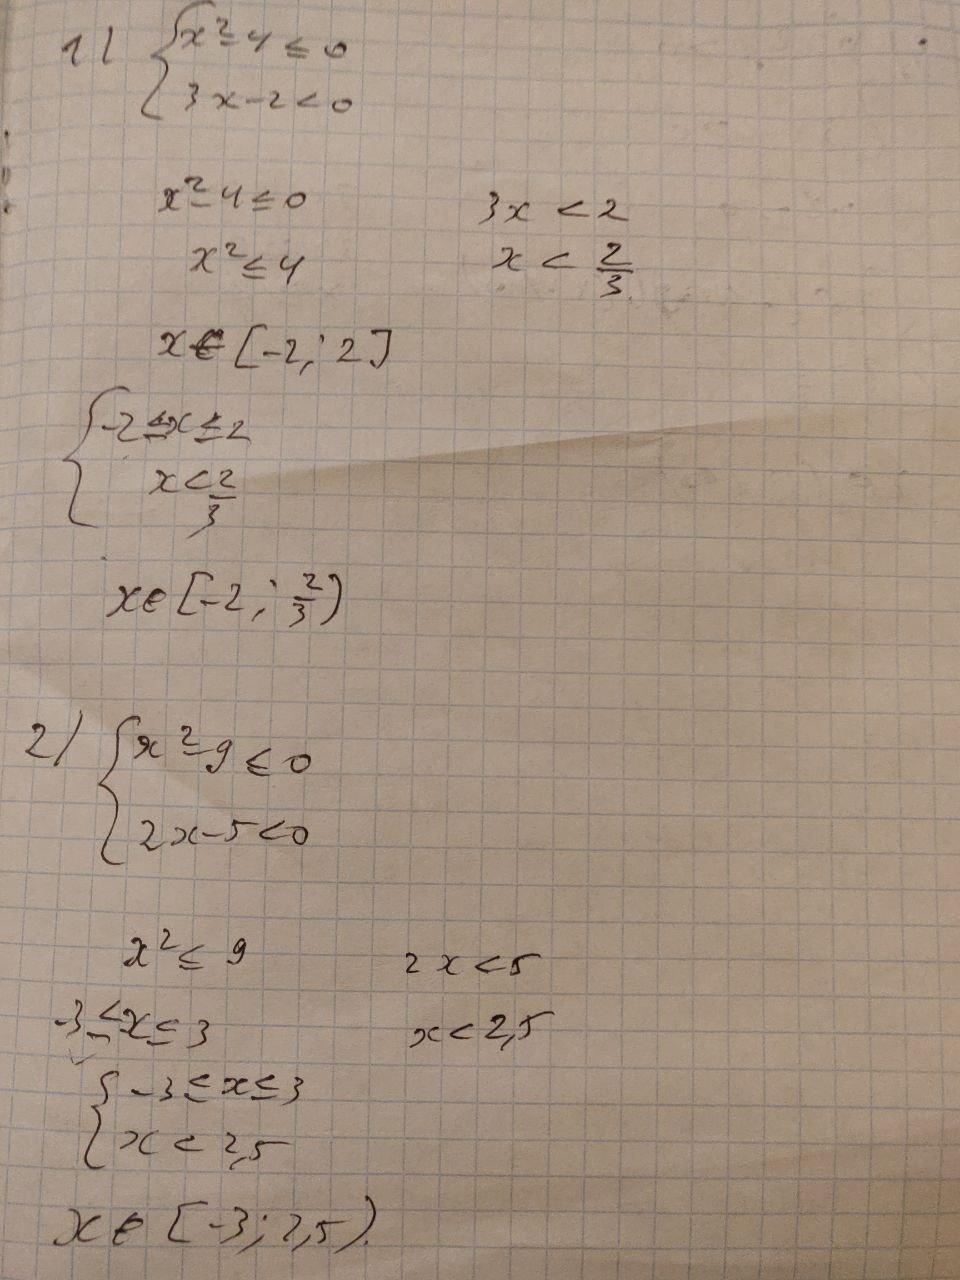 1) { x² - 4 ≤ 0
3x - 2 < 0
x² - 4 ≤ 0    3x < 2
x² ≤ 4    x < 2/3
x ∈ [-2; 2]
{ -2 ≤ x ≤ 2
x < 2/3
x ∈ [-2; 2/3)
2) { x² - 9 ≤ 0
2x - 5 < 0
x² ≤ 9    2x < 5
-3 ≤ x ≤ 3    x < 2,5
{ -3 ≤ x ≤ 3
x < 2,5
x ∈ [-3; 2,5).